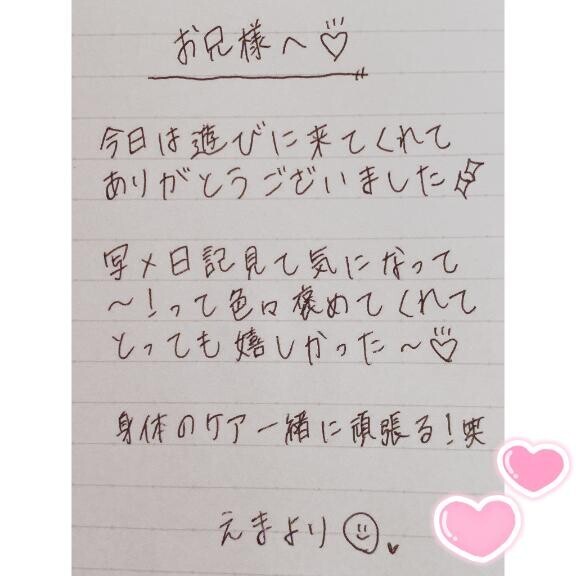 お兄様へ♡
今日は遊びに来てくれて
ありがとうございました
写メ日記見て気になって
〜!って色々褒めてくれて
とっても嬉しかった〜♡
身体のケア一緒に頑張る!笑
えまより